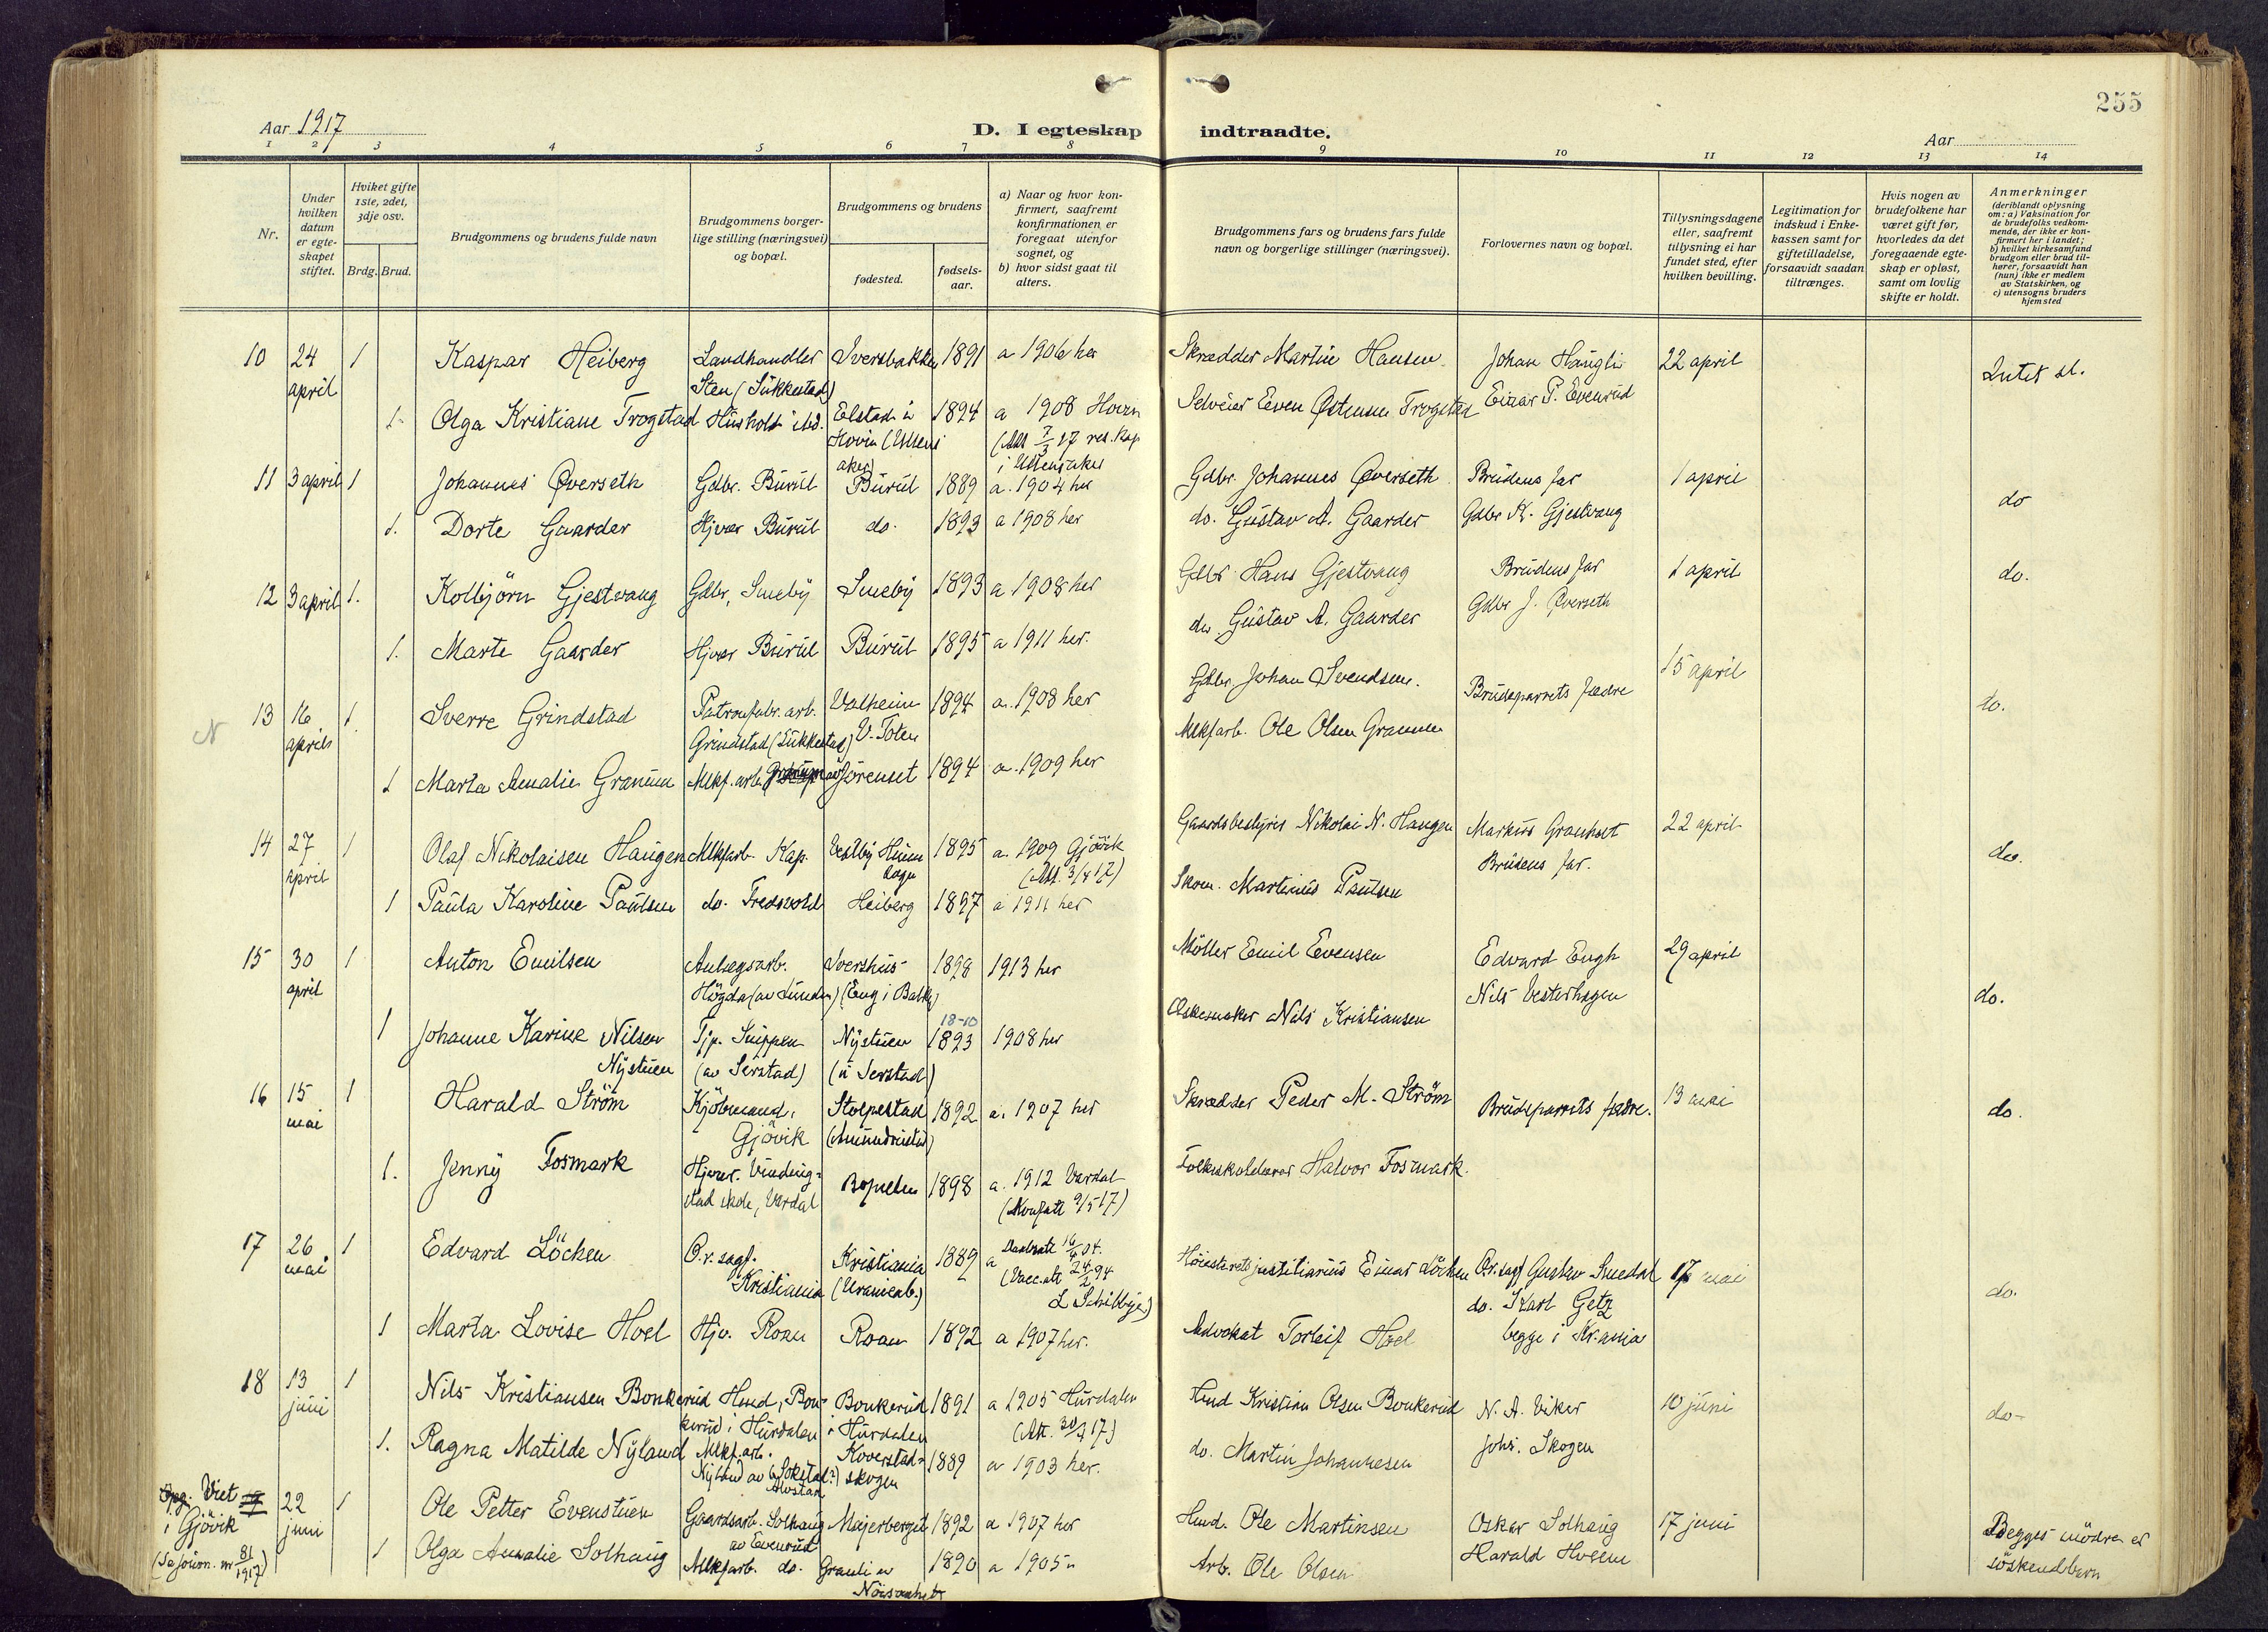 255
Aar 1917
D. I egteskap indtraadte.
Aar
1 2 3 4 5 6 7 8 9 10 11 12 13 14
Nr.
Under hvilken datum er egte-skapet stiftet.
Hviket gifte 1ste, 2det, 3dje osv.
Brdg. Brud.
Brudgommens og brudens fulde navn
Brudgommens borger-lige stilling (næringsvei) og bopæl.
Brudgommens og brudens
fødested.
fødsels-aar.
a) Naar og hvor kon-firmert, saafremt konfirmationen er foregaat utenfor sognet, og
b) hvor sidst gaat til alters.
Brudgommens fars og brudens fars fulde navn og borgerlige stillinger (næringsvei).
Forlovernes navn og bopæl.
Tillysningsdagene eller, saafremt tillysning ei har fundet sted, efter hvilken bevilling.
Legitimation for indskud i Enke-kassen samt for giftetilladelse, forsaavidt saadan tiltrænges.
Hvis nogen av brudefolkene har været gift før, hvorledes da det foregaaende egte-skap er opløst, samt om lovlig skifte er holdt.
Anmerkninger (deriblandt oplysning om: a) Vaksination for de brudefolks vedkom-mende, der ikke er kon-firmert her i landet; b) hvilket kirkesamfund brudgom eller brud til-hører, forsaavidt han (hun) ikke er medlem av Statskirken, og c) utensogns bruders hjemsted
10 24 april 1 Kaspar Heiberg Landhandler Sten (Sukkestad) Iversbakken 1891 a 1906 her Skrædder Martin Hansen Johan Hauglie 22 april Intet sl.
1. Olga Kristiane Trogstad Hushold. ibd. Elstad i Hovin (Ullensaker) 1894 a 1908 Hovin (Att 7/3 17 res. kap i Ullensaker Selveier Even Østensen Trogstad Einar P. Evenrud
11 3 april 1 Johannes Øverseth Gdbr. Burul Burul 1889 a. 1904 her Gdbr. Johannes Øverseth Brudens far 1 april do
1. Dorte Gaarder Hjvær Burul do. 1893 a 1908 her do. Gustav A. Gaarder Gdbr K. Gjestvang
12 3 april 1. Kolbjörn Gjestvang Gdbr. Smeby Smeby 1893 a 1908 her Gdbr Hans Gjestvang Brudens far 1 april do.
1. Marte Gaarder Hjvær Burul Burul 1895 a 1911 her. do Gustav A. Gaarder Gdbr J. Øverseth
N 13 16 april 1. Sverre Grindstad Patronfabr. arb. Grindstad (Sukkestad) Valheim V. Toten 1894 a. 1908 her Gdbr. Johan Svendsen. Brudeparrets fædre 15 april do.
1 Marta Amalie Granum Mekf. arb. Sörenset 1894 a. 1909 her Mekfarb. Ole Olsen Granum
14 27 april 1 Olaf Nikolaisen Haugen Mekfarb. Kap. 1895 a. 1909 Gjövik (Att. 3/4 17) Gaardsbestyrer Nikolai N. Haugen Markus Granholt 22 april do.
1 Paula Karoline Paulsen do. Fredsvold Heiberg 1897 a 1911 her Skom. Martinius Paulsen Brudens far.
15 30 april 1 Anton Emilsen Anlægsarb. Högda (av Lunden)Ivershus (Eng i Balke) 1898 1913 her Möller Emil Evensen Edvard Engh 29 april do.
1 Johanne Karine Nilsen Nystuen Tjp. Snippen (av Serstad) Nystuen (u Serstad) 18-10 1893 1908 her Æskemaker Nils Kristiansen Nils Vesterhagen
16 15 mai 1 Harald Ström Kjöbmand, Gjövik Stolpestad (Amundrustad) 1892 a. 1907 her Skrædder Peder M. Ström Brudeparrets fædre. 13 mai do.
1. Jenny Fosmark Hjvær. Vinding-stad skole, Vardal Bopælen 1898 a. 1912 Vardal (Konfatt 9/5 17) Folkeskolelærer Halvor Fosmark.
17 26 mai 1 Edvard Löchen O.r.sagf. Kristiania Kristiania (Uranienb.) 1889 a Daabsatt 16/4 04. (Vacc.att 24/2 94 L Schibbye) Höiesteretsjustitiarius Einar Löchen Or.sagf Gustav Smedal 17 mai do.
1 Marta Lovise Hoel Hjv. Roan Roan 1892 a 1907 her. Advokat Torleif Hoel do. Karl Getz begge i Kr.ania
18 13 juni 1 Nils Kristiansen Bonkerud Hmd, Bon-kerud i Hurdalen Bonkerud i Hurdalen 1891 a 1905 Hurdalen (Att. 30/4 17) Hmd Kristian Olsen Bonkerud N. A. Viker 10 juni do-
1. Ragna Matilde Nyland Mekf.arb. Nyland av Alvstad Koverstad-skogen 1889 a 1903 her. do. Martin Johannesen Johs. Skogen
Viet i Gjövik (Se journ. nr 81/1917) 22 juni 1 Ole Petter Evenstuen Gaardsarb. Solhaug av Evenrud Majerberget 1892 a 1907 her Hmd. Ole Martinsen Oskar Solhaug 17 juni Begges mödre er söskendbarn
1 Olga Amalie Solhaug Mekfarb. do. Grauli av Nöisomhet 1890 a 1905 " Arb. Ole Olsen Harald Hveem